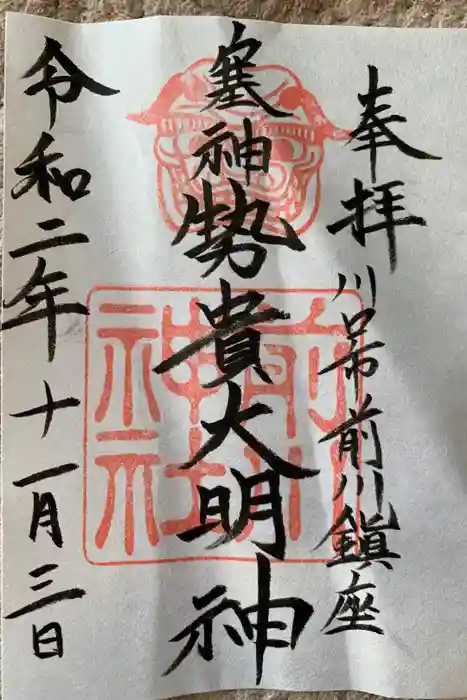 奉拝
川口市前川鎮座
塞神
勢貴大明神
令和二年十一月三日
前川
神社